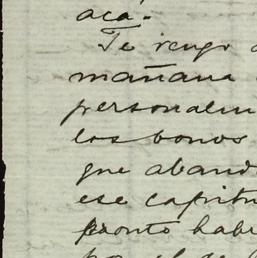 acá.
Te rengo a
mañana
personalm
los bonos
que aband
ese capitu
pronto habr
por el de